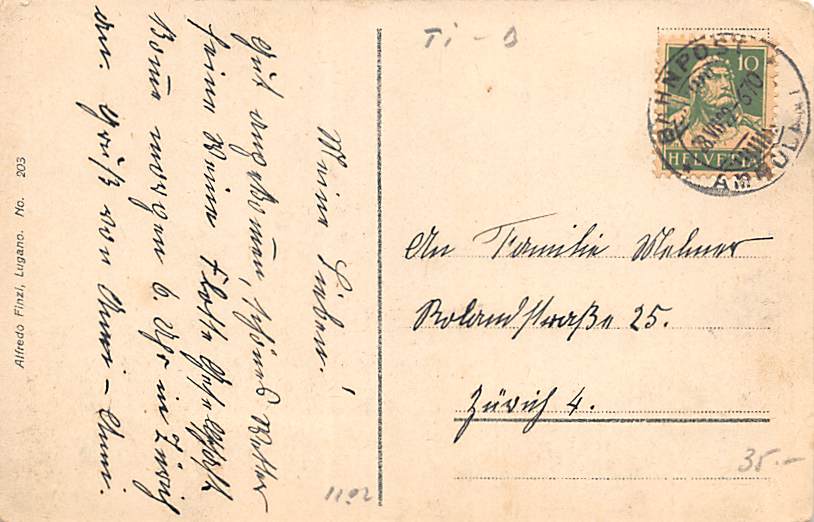 Meine Lieben!
Gut angekommen, schönes Wetter
feine Reise Flotte Gesellschaft
Komme morgen 6 Uhr in Zürich
an. Gruß von
An Familie
Rolandstraße 25.
Zürich 4.
Ti - B
10
HELVETIA
BAHNPOST
AMBULANT
Alfredo Finzi, Lugano. No. 203
35.-